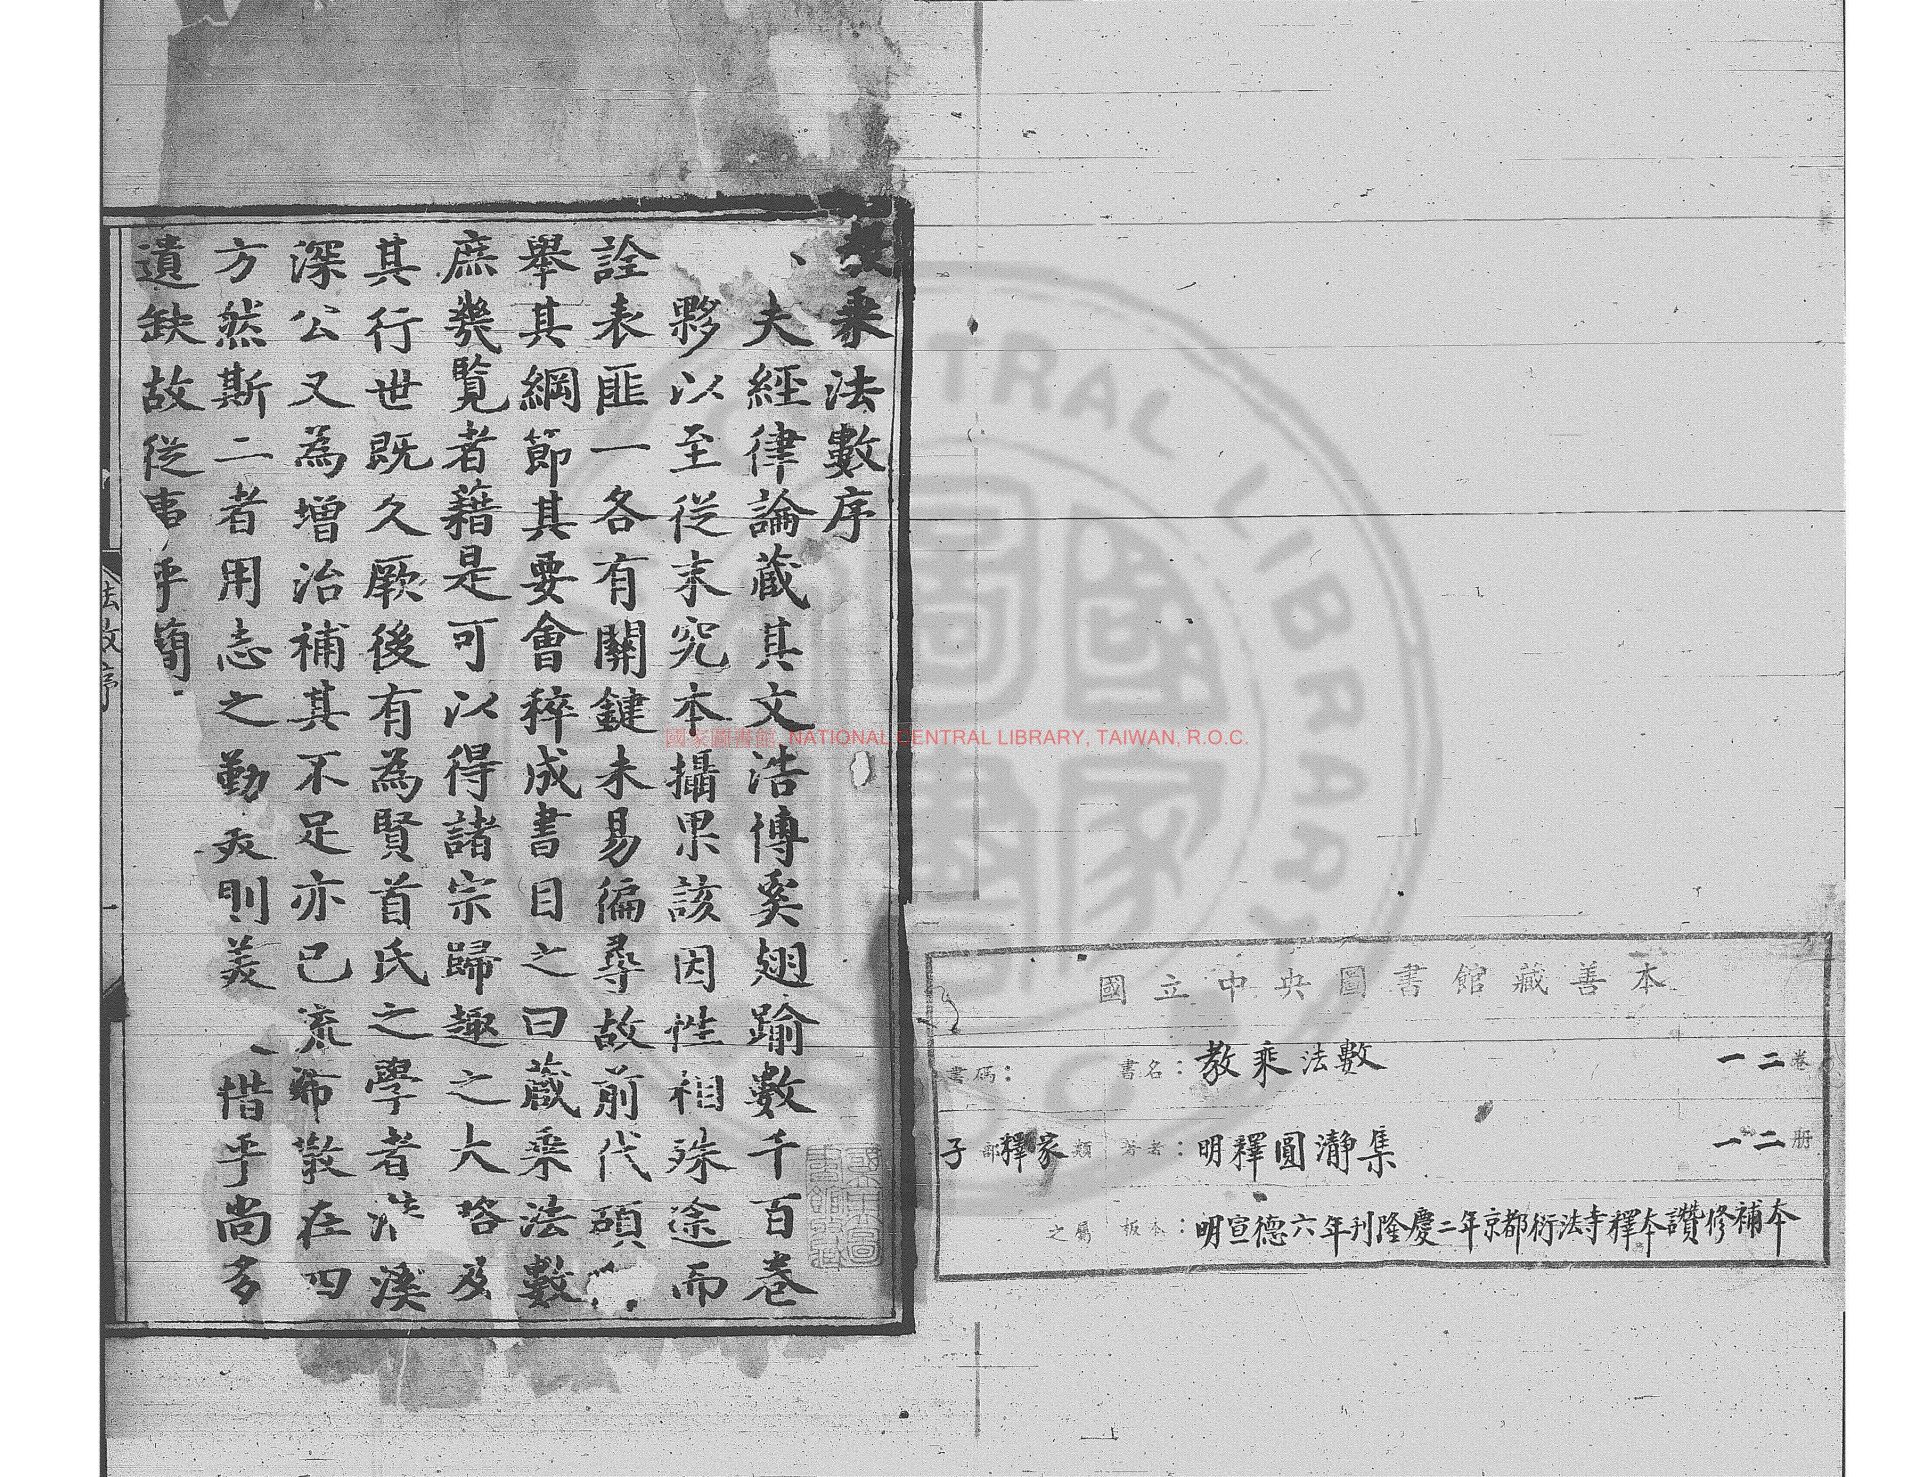 教乘法數序
夫經律論藏其文浩博奚翅踰數千百卷
夥以至從末究本攝果該因性相殊途而
詮表匪一各有關鍵未易徧尋故前代碩
舉其綱節其要會稡成書目之曰藏乘法數
庶幾覽者藉是可以得諸宗歸趣之大略及
其行世既久厥後有為賢首氏之學者溪
深公又為增治補其不足亦已流布散在四
方然斯二者用志之勤矣則美惜乎尚多
遺缺故從事乎簡
法数序
一
國立中央圖書館藏善本
書碼：
書名：教乘法數
一二卷
子部釋家類
著者：明釋圓瀞集
一二册
之屬
板本：明宣德六年刊隆慶二年京都衍法寺釋本讚修補本
國家圖書館, NATIONAL CENTRAL LIBRARY, TAIWAN, R.O.C.